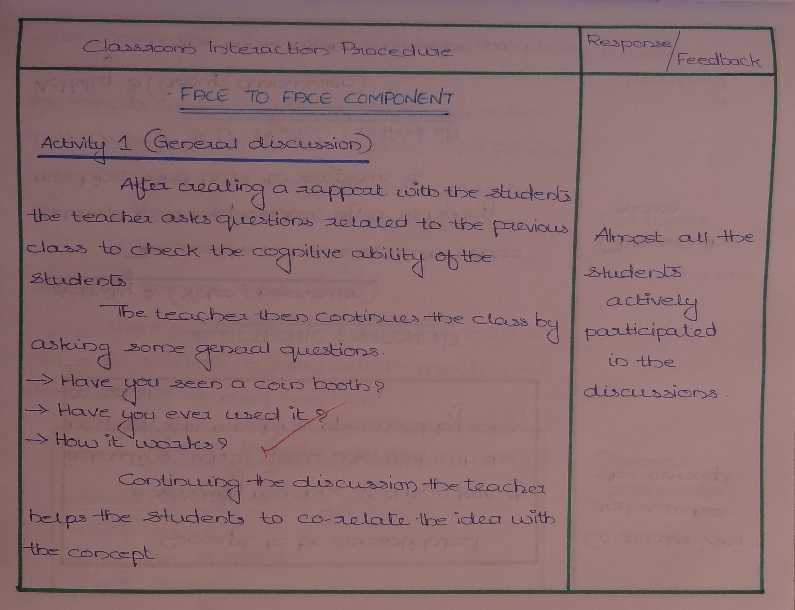 Classroom Interaction Procedure
Response/
Feedback
FACE TO FACE COMPONENT
Activity 1 (General discussion)
After creating a rapport with the students
the teacher asks questions related to the previous
class to check the cognitive ability of the
students.
The teacher then continues the class by
asking some general questions.
→ Have you seen a coin booth?
→ Have you ever used it?
→ How it works?
Continuing the discussion the teacher
helps the students to co-relate the idea with
the concept
Almost all the
students
actively
participated
in the
discussions.